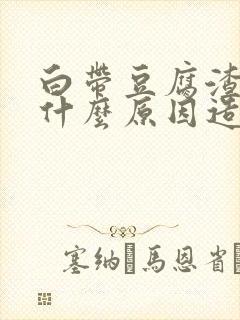 白帶豆腐渣
什麼原因造
塞納馬恩省